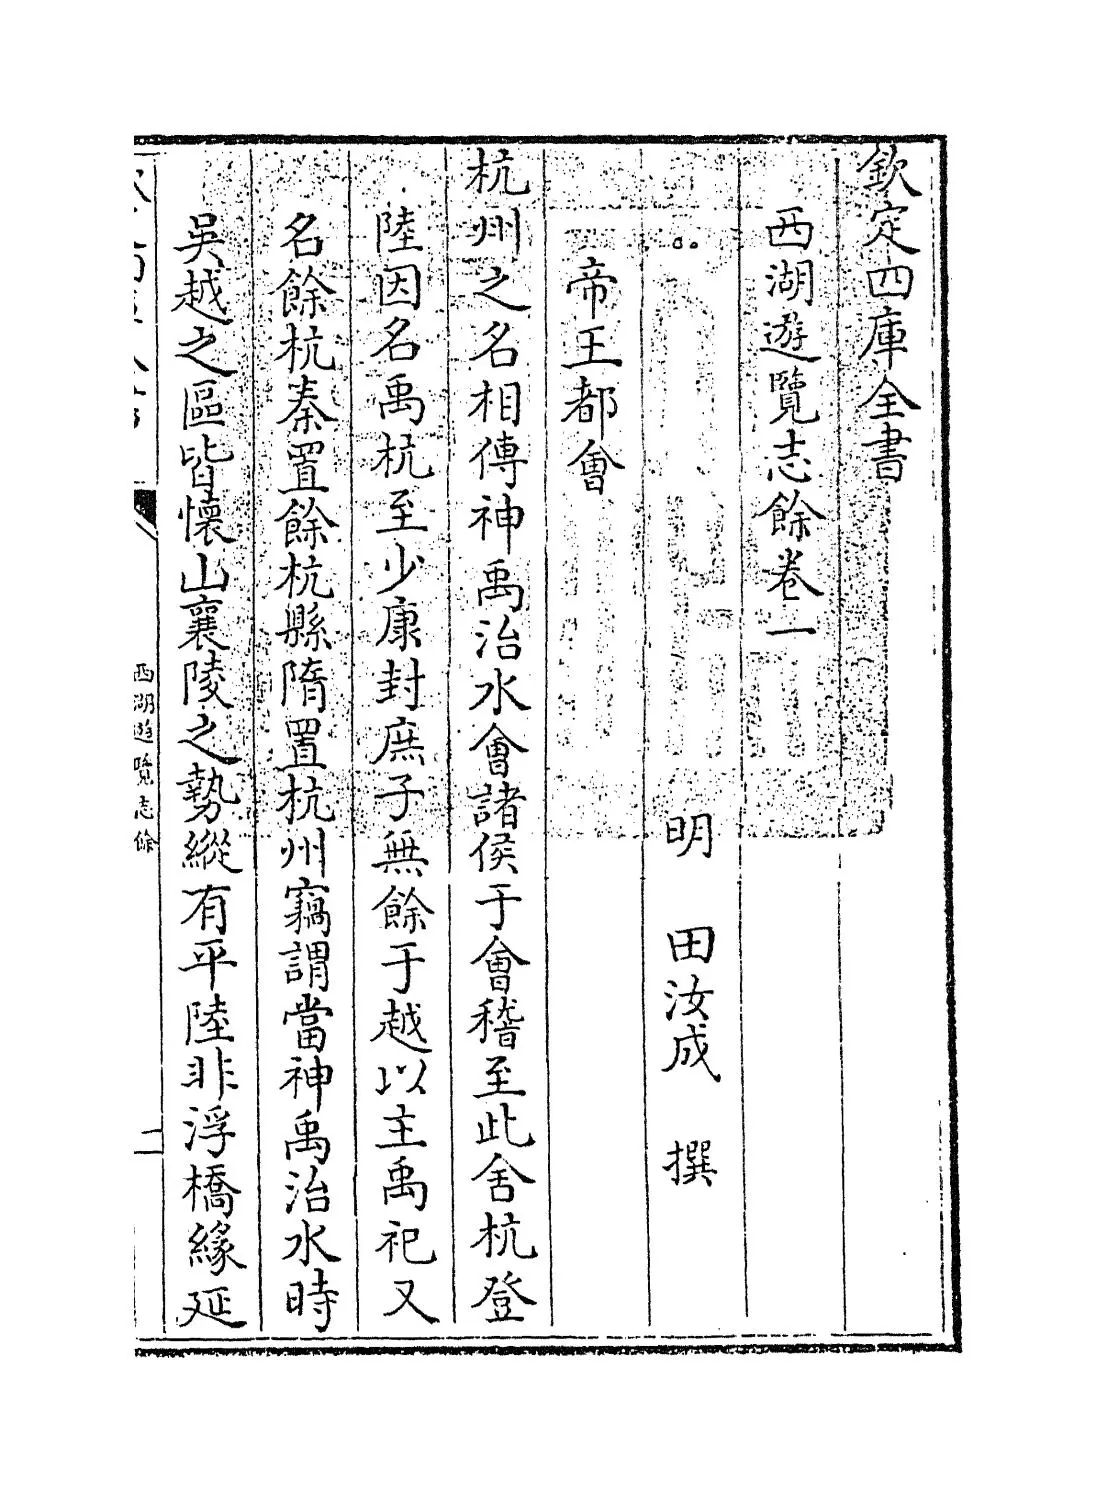 欽定四庫全書
西湖遊覽志餘卷一
明 田汝成 撰
帝王都會
杭州之名相傳神禹治水會諸侯于會稽至此舍杭登
陸因名禹杭至少康封庶子無餘于越以主禹祀又
名餘杭秦置餘杭縣隋置杭州竊謂當神禹治水時
吳越之區皆懷山襄陵之勢縱有平陸非浮橋緣延
西湖遊覽志餘
二